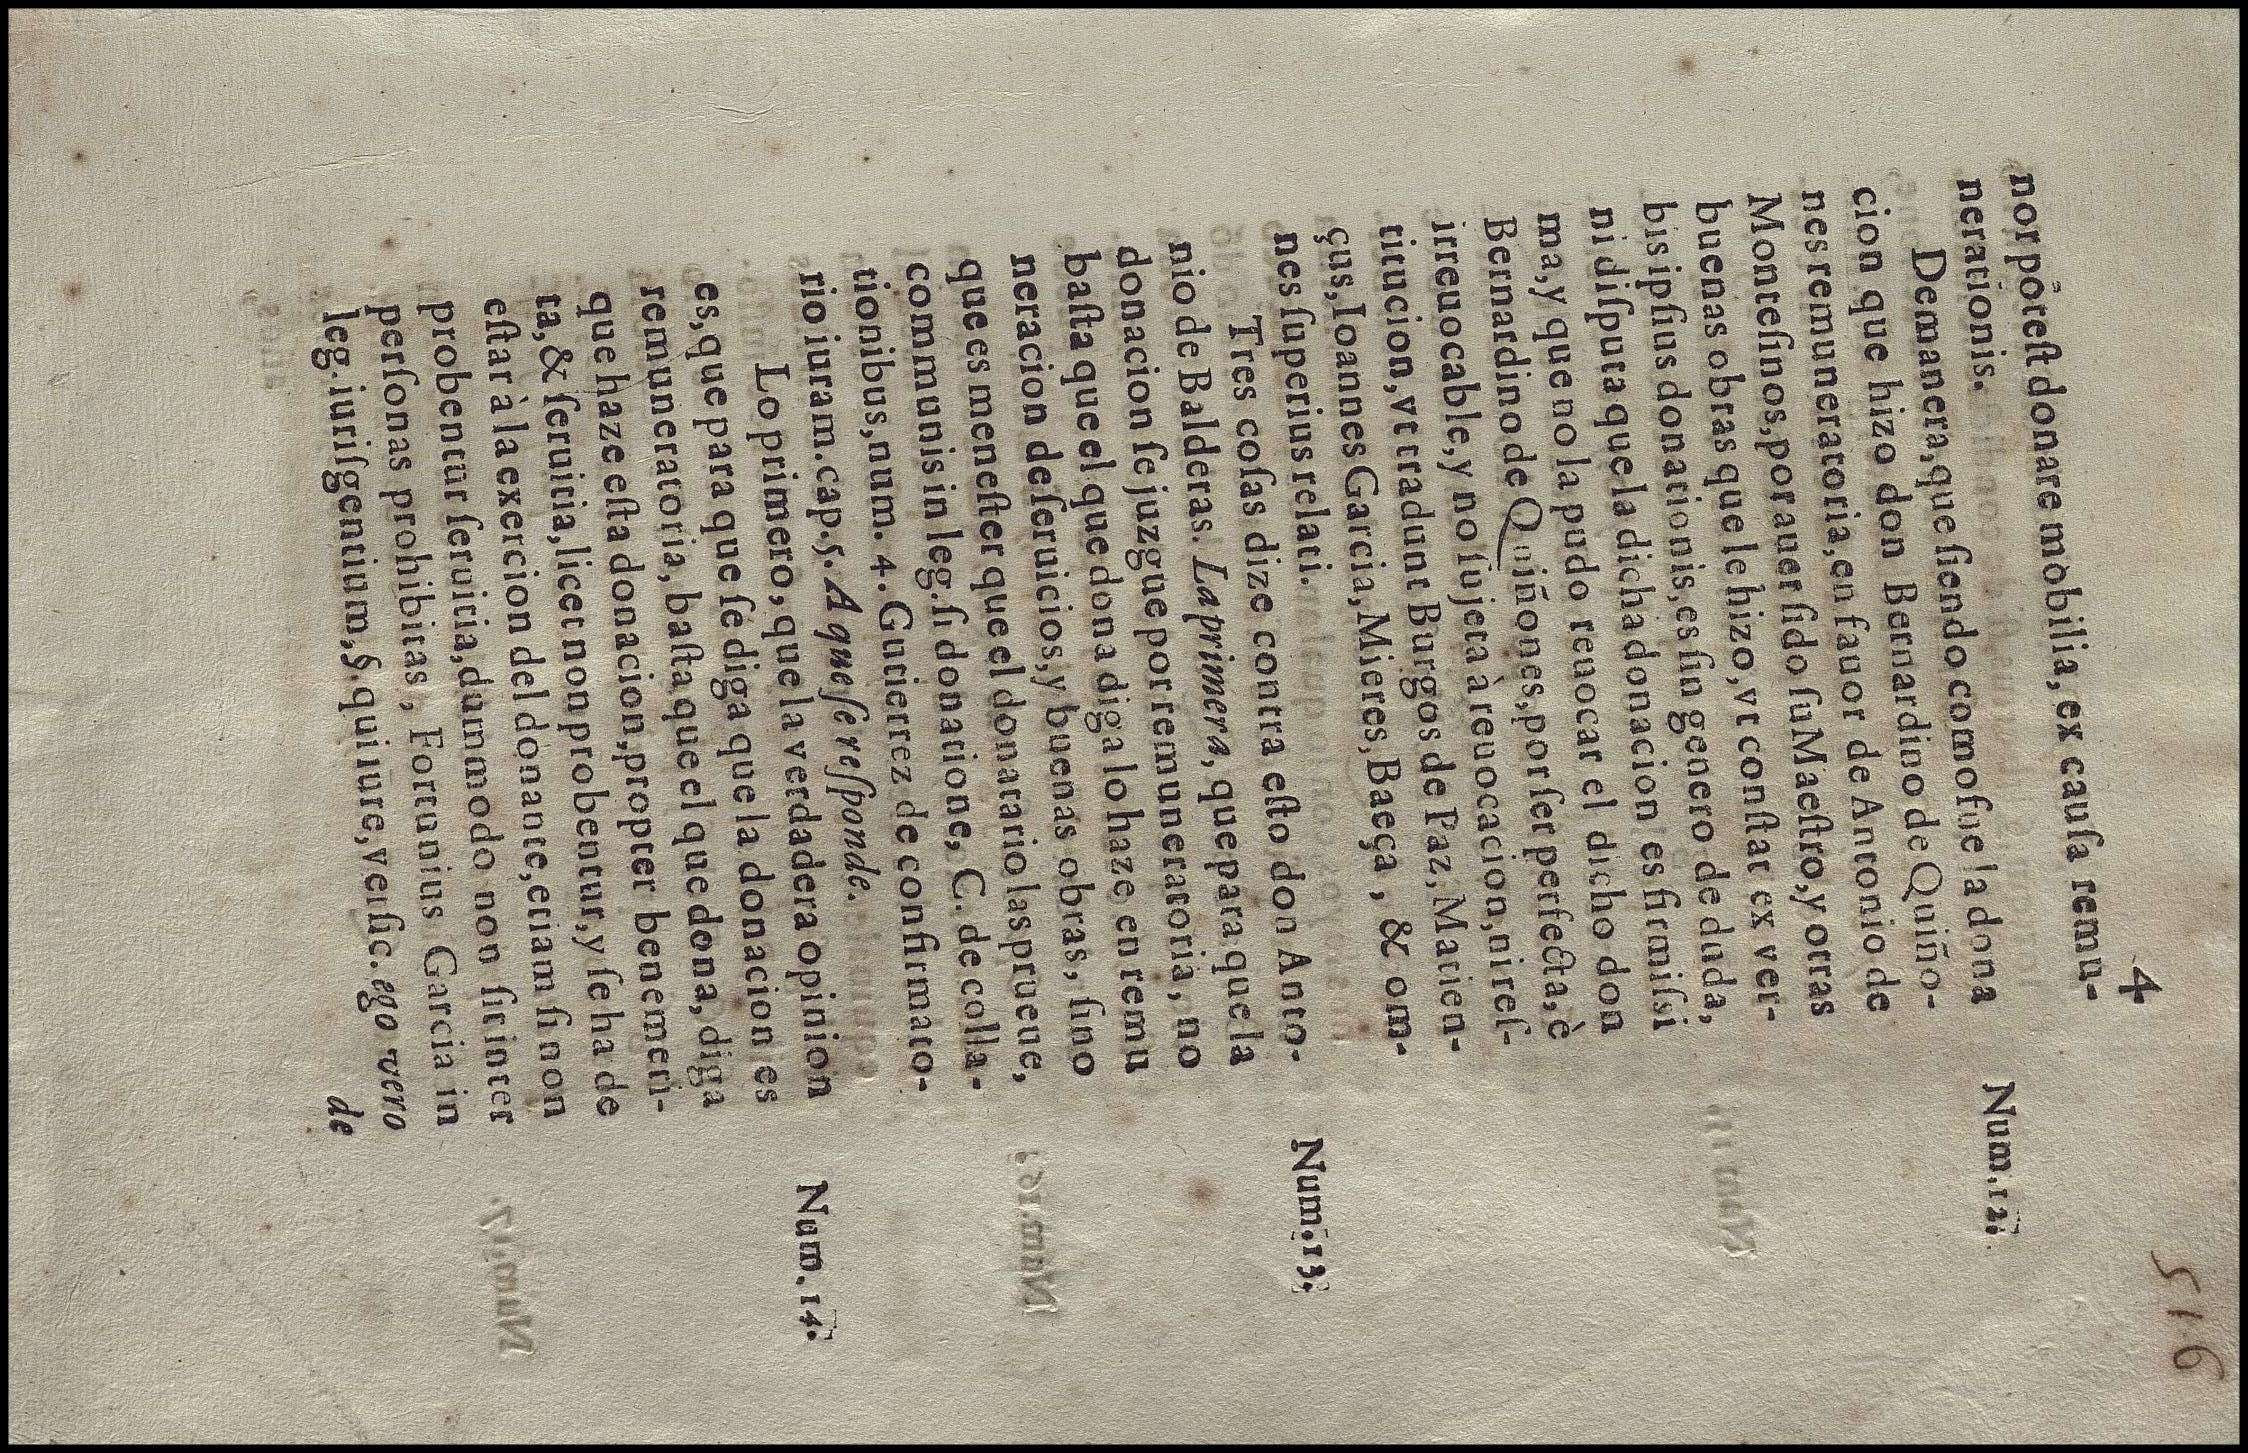 4
516
nor põtest donare mobilia, ex causa remu-
nerationis.
Num.12.
De manera, que siendo como fue la dona
cion que hizo don Bernardino de Quiño-
nes remuneratoria, en fauor de Antonio de
Montesinos, por auer sido su Maestro, y otras
buenas obras que le hizo, vt constar ex ver-
bis ipsius donationis, es sin genero de duda,
ni disputa que la dicha donacion es firmissi
ma, y que no la pudo reuocar el dicho don
Bernardino de Quiñones, por ser perfecta, è
irreuocable, y no sujeta à reuocacion, ni res-
titucion, vt tradunt Burgos de Paz, Matien-
çus, Ioannes Garcia, Mieres, Baeça, & om-
nes superius relati.
Num.13.
Tres cosas dize contra esto don Anto-
nio de Balderas. La primera, que para que la
donacion se juzgue por remuneratoria, no
basta que el que dona diga lo haze en remu
neracion de seruicios, y buenas obras, sino
que es menester que el donatario las prueue,
communis in leg. si donatione, C. de colla-
tionibus, num. 4. Gutierrez de confirmato-
rio iuram. cap. 5. A que se responde.
Num.14.
Lo primero, que la verdadera opinion
es, que para que se diga que la donacion es
remuneratoria, basta que el que dona, diga
que haze esta donacion, propter benemeri-
ta, & seruitia, licet non probentur, y se ha de
estar à la exercion del donante, etiam si non
probentur seruitia, dummodo non sit inter
personas prohibitas, Fortunius Garcia in
leg. iurisgentium, §. qui iure, versic. ego vero
de